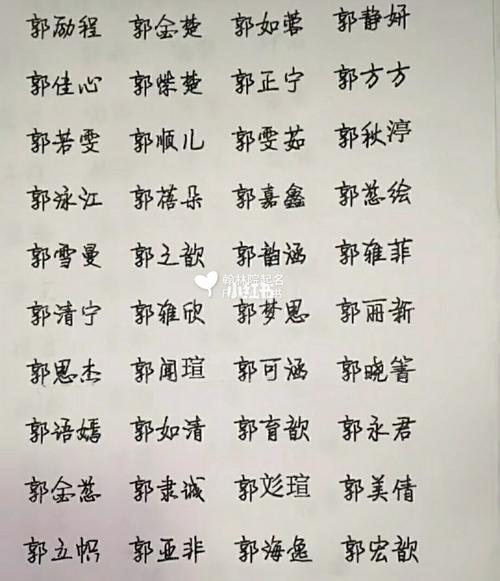 郭励程 郭金楚 郭如蓉 郭静妍
郭佳心 郭荣楚 郭正宁 郭方方
郭若雯 郭顺儿 郭雯茹 郭秋渟
郭泳江 郭蓓朵 郭嘉鑫 郭慈绘
郭雪曼 郭之歆 郭韵涵 郭雅菲
翰林院起名
小红书
郭清宁 郭雅欣 郭梦思 郭丽新
郭思杰 郭闻瑄 郭可涵 郭晓箐
郭语嫣 郭如清 郭育歆 郭永君
郭金蕊 郭隶诚 郭彣瑄 郭美倩
郭立帜 郭亚非 郭海逸 郭宏歆